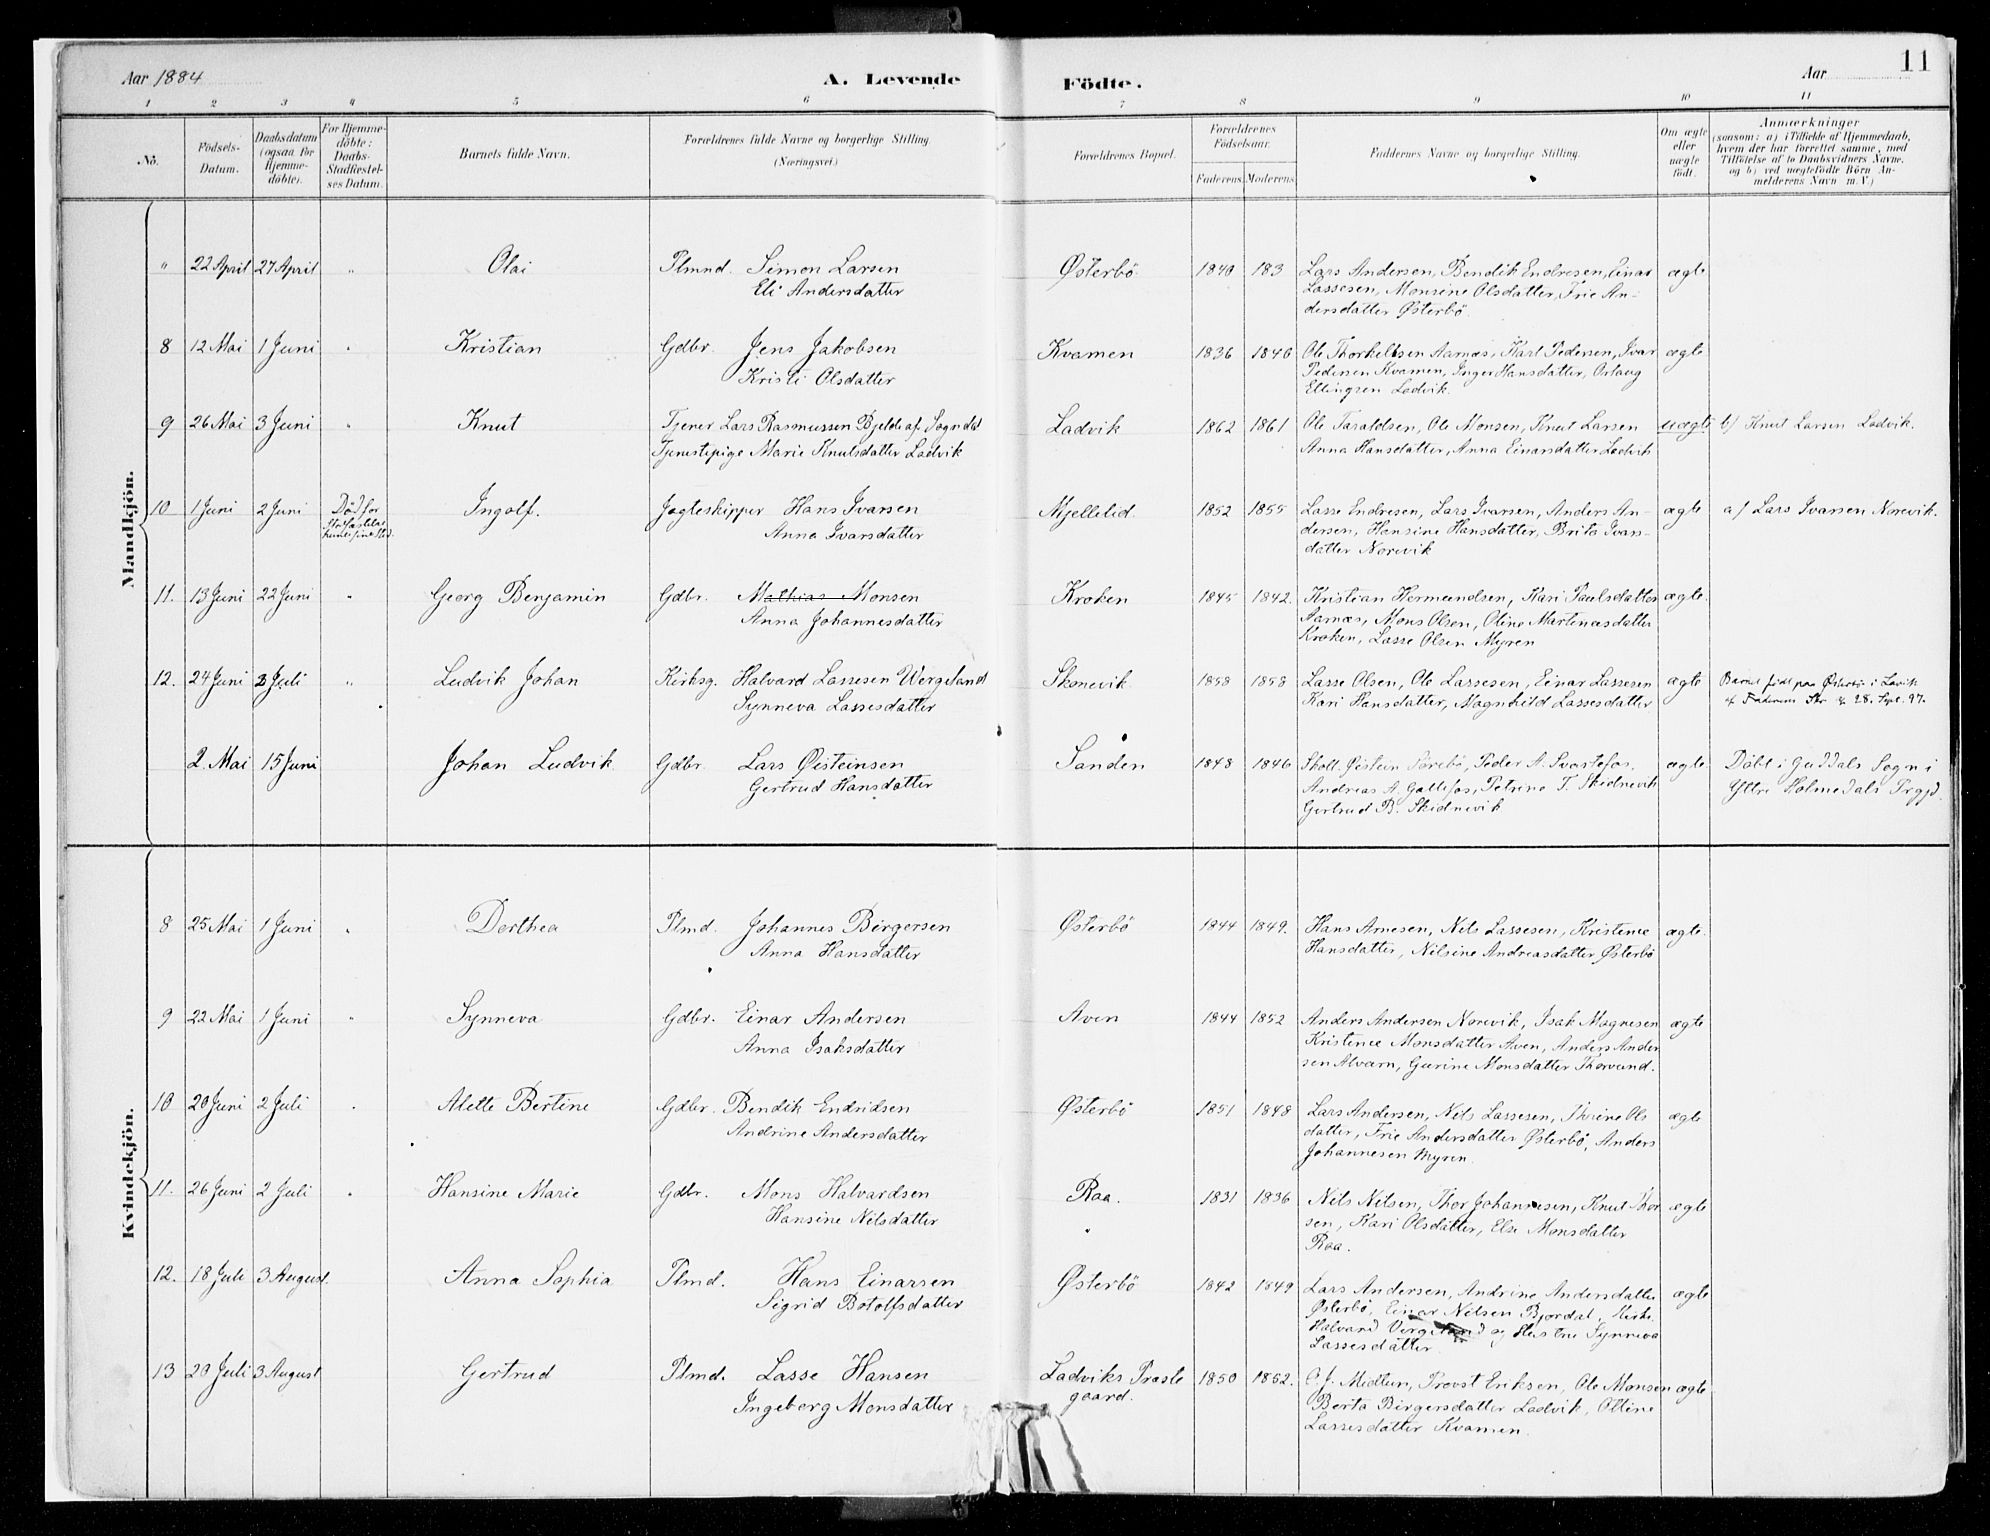 Aar 1884
A. Levende
Födte.
Aar
11
1 2 3 4 5 6 7 8 9 10 11
No.
Födsels-Datum.
Daabsdatum (ogsaa for Hjemme-döbte).
For Hjemme-döbte: Daabs-Stadfæstel-ses Datum.
Barnets fulde Navn.
Forældrenes fulde Navne og borgerlige Stilling (Næringsvei).
Forældrenes Bopæl.
Forældrenes Födselsaar.
Faderens. Moderens.
Faddernes Navne og borgerlige Stilling.
Om ægte eller uægte födt.
Anmærkninger
(saasom: a) i Tilfælde af Hjemmedaab, hvem der har forrettet samme, med Tilföielse af to Daabsvidners Navne. og b) ved uægtefödte Börn An-melderens Navn m.V.)
Mandkjön.
" 22 April 27 April " Olai Plmnd. Simon Larsen Østerbö 1840 183 Lars Andersen, Bendik Endresen, Einar ægte
Eli Andersdatter Lassesen, Monsine Olsdatter, Frie An-
dersdatter Østerbö.
8 12 Mai 1 Juni " Kristian Gdbr. Jens Jakobsen Kvamen 1836 1846 Ole Thorkelsen Aarnæs, Karl Pedersen, Ivar ægte
Kristi Olsdatter Pedersen Kvamen, Inger Hansdatter, Oslaug
Ellingsen Ladvik.
9 26 Mai 3 Juni " Knut Tjener Lars Rasmussen Bjelde af Sogndal Ladvik 1862 1861 Ole Taraldsen, Ole Monsen, Knut Larsen uægte b) Knut Larsen Ladvik.
Tjenestepige Marie Knutsdatter Ladvik Anna Hansdatter, Anna Einarsdatter Ladvik
10 1 Juni 2 Juni Död for Ingolf. Jagteskipper Hans Ivarsen Mjellelid 1852 1855 Lasse Endresen, Lars Ivarsen, Anders An- ægte a) Lars Ivarsen Norevik.
Anna Ivarsdatter dersen, Hansine Hansdatter, Brita Ivars-
datter Norevik
11. 13 Juni 22 Juni " Georg Benjamin Gdbr. Mathias Monsen Kroken 1845 1842. Kristian Hermundsen, Kari Paulsdatter ægte.
Anna Johannesdatter Aarnæs, Mons Olsen, Oline Martinusdatter
Kroken, Lasse Olsen Myren
12. 24 Juni 3 Juli " Ludvik Johan Kirksg. Halvard Lassesen Wergeland Skonevik 1858 1858 Lasse Olsen, Ole Lassesen, Einar Lassesen ægte Barnet födt paa Østerbö i Lavik
Synneva Lassesdatter Kari Hansdatter, Magnhild Lassesdatter Faderens Skr. 28. Sept. 97.
2. Mai 15 Juni Johan Ludvik Gdbr. Lars Øisteinsen Sanden 1848 1846 Skoll. Øistein Sørebö, Peder A. Svartefos, ægte. Döbt i Guddals Sogn i
Gertrud Hansdatter Andreas A. Gallefos, Petrine T. Skidnevik Yttre Holmedals Prgjd.
Gertrud B. Skidnevik
Kvindekjön.
8 25 Mai 1 Juni " Dorthea Plmd. Johannes Birgersen Østerbö 1844 1849. Hans Arnesen, Nils Lassesen, Kristence ægte.
Anna Hansdatter Hansdatter, Nilsine Andreasdatter Østerbö
9 22 Mai 1 Juni " Synneva Gdbr. Einar Andersen Aven 1844 1852 Anders Andersen Norevik, Isak Magnesen ægte
Anna Isaksdatter Kristence Monsdatter Aven, Anders Ander
sen Alværn, Gurine Monsdatter Thorsund.
10 20 Juni 2 Juli " Alette Bertine Gdbr. Bendik Endridsen Østerbö 1851 1848 Lars Andersen, Nils Lassesen, Thrine Ols ægte
Andrine Andersdatter datter, Frie Andersdatter Østerbö, Anders
Johannesen Myren.
11. 26 Juni 2 Juli " Hansine Marie Gdbr. Mons Halvardsen Raa. 1831 1836 Nils Nilsen, Thor Johannesen, Knut Thor ægte
Hansine Nilsdatter " sen, Kari Olsdatter, Else Monsdatter
Raa.
12. 18 Juli 3 August. Anna Sophia Plmd. Hans Einarsen Østerbö 1842 1849 Lars Andersen, Andrine Andersdatter ægte
Sigrid Botolfsdatter Østerbö, Einar Nilsen Bjordal, Kirks.
Halvard Vergeland og Hustru Synneva
Lassesdatter.
13 20 Juli 3 August Gertrud Plmd. Lasse Hansen Ladviks Præste 1850 1852. O. J. Midtun, Provst Eriksen, Ole Monsen ægte
Ingeberg Monsdatter gaard. Berta Birgersdatter Ladvik, Oline
Lassesdatter Kvamen.